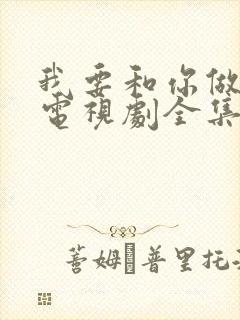 我要和你做
電視劇全集
薈姆·普里托